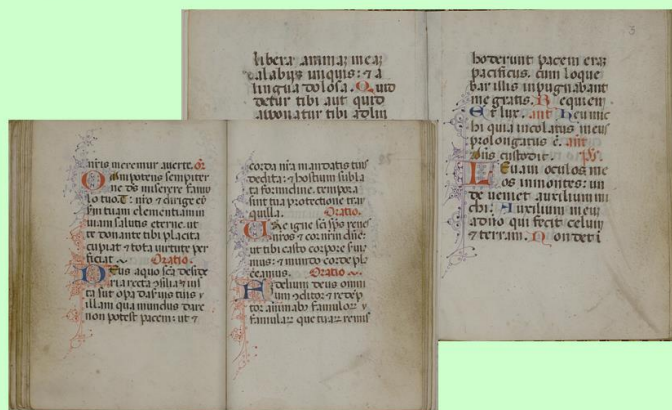 libera animaz meaz
alabijs iniquis: ⁊ a
lingua dolosa. Quid
detur tibi aut quid
aponatur tibi adlin
3
hoderunt pacem eraz
pacificus. cum loque
bar illis inpugnabant
me gratis. Requiem
Et lux. ant Heu michi
chi quia incolatus meus
prolongatus ē. ant
Dn̄s custodit. ps.
Leuaui oculos me
os inmontes: un
de ueniet auxilium mi
chi. Auxilium meuz
adn̄o qui fecit celum
⁊ terram. Non det i
nr̄is meremur auerte. or̄.
Omnipotens sempiter
ne ds̄ miserere famu
lo tuo. N. nr̄o ⁊ dirige eū
sm̄ tuam clementiam in
uiam salutis eterne. ut
te donante tibi placita
cupiat ⁊ tota uirtute per
ficiat. Oratio.
Deus aquo sc̄a deside
ria recta ⁊silia ⁊ius
ta sūt opa da suis tuis
illam qua mundus dare
non potest pacem: ut ⁊
corda nr̄a mandatis tuis
dedita: ⁊ hostium subla
ta formidine. tempora
sint tua protectione tran
quilla. Oratio.
Vre igne sc̄i sp̄s renes
nr̄os ⁊ cor nr̄m dn̄e:
ut tibi casto corpore serui
mus: ⁊ mundo corde pla
ceamus. Oratio
Fidelium deus omni
um ⁊ditor ⁊ redēp
tor animabz famulorz
famularz que tuarz remis